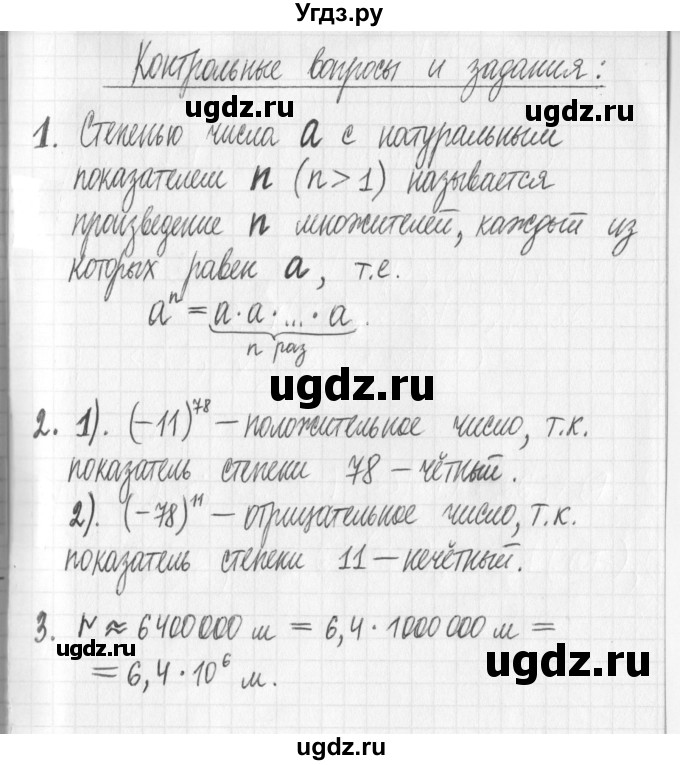 Угдз.ру
Контрольные вопросы и задания:
ugdz.ru
1. Степенью числа a с натуральным
показателем n (n > 1) называется
произведение n множителей, каждый из
которых равен a, т.е.
aⁿ = a · a · ... · a.
n раз
ugdz.ru
2. 1). (−11)⁷⁸ − положительное число, т.к.
показатель степени 78 − чётный.
ugdz.ru
2). (−78)¹¹ − отрицательное число, т.к.
показатель степени 11 − нечётный.
3. r ≈ 6400000 м = 6,4 · 1000000 м =
ugdz.ru
= 6,4 · 10⁶ м.
ugdz.ru
ugdz.ru